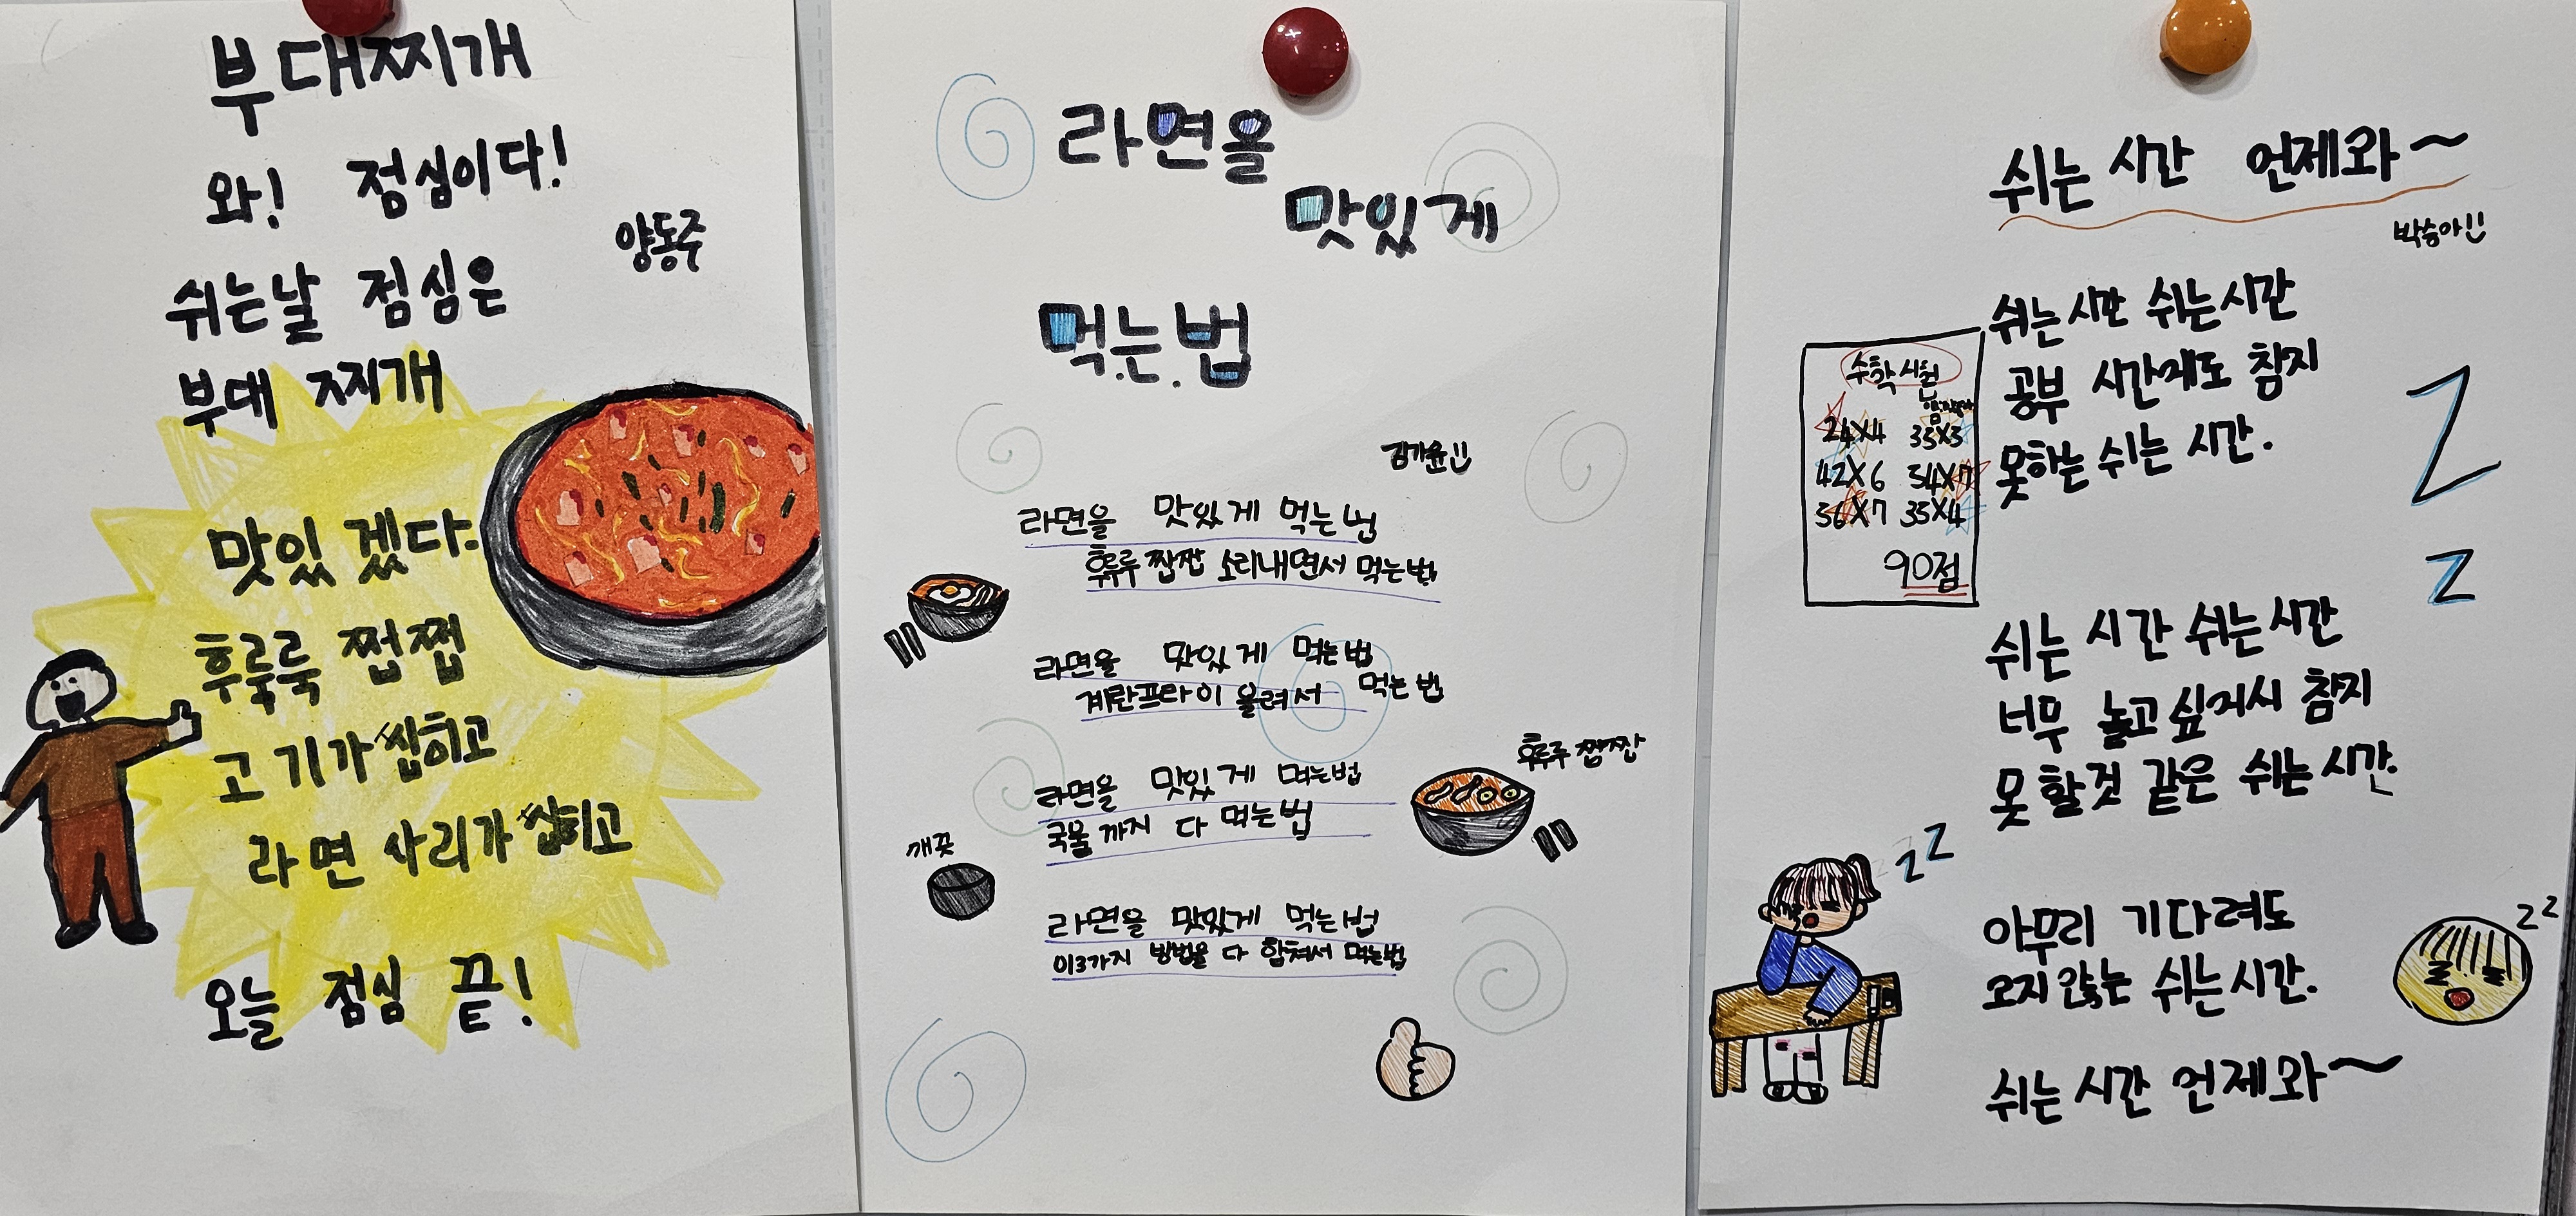 부대찌개
와! 점심이다!
양동주
쉬는날 점심은
부대 찌개
맛있 겠다.
후룩룩 쩝쩝
고기가 씹히고
라면 사리가 씹히고
오늘 점심 끝!
라면을
맛있게
먹는법
김가윤
라면을 맛있게 먹는법
후루루 짭짭 소리내면서 먹는법
라면을 맛있게 먹는법
계란프라이 올려서 먹는법
라면을 맛있게 먹는법
국물까지 다 먹는법
후루루 짭짭
깨끗
라면을 맛있게 먹는법
이3가지 방법을 다 합쳐서 먹는법
쉬는 시간 언제와~
박승아
쉬는시간 쉬는시간
공부 시간에도 참지
못하는 쉬는 시간.
수학시험
24X4 35X3
42X6 54X7
36X7 35X4
90점
Z
Z
쉬는 시간 쉬는시간
너무 놀고싶어서 참지
못할것 같은 쉬는시간.
zZ
아무리 기다려도
오지않는 쉬는시간.
zZ
쉬는 시간 언제와~